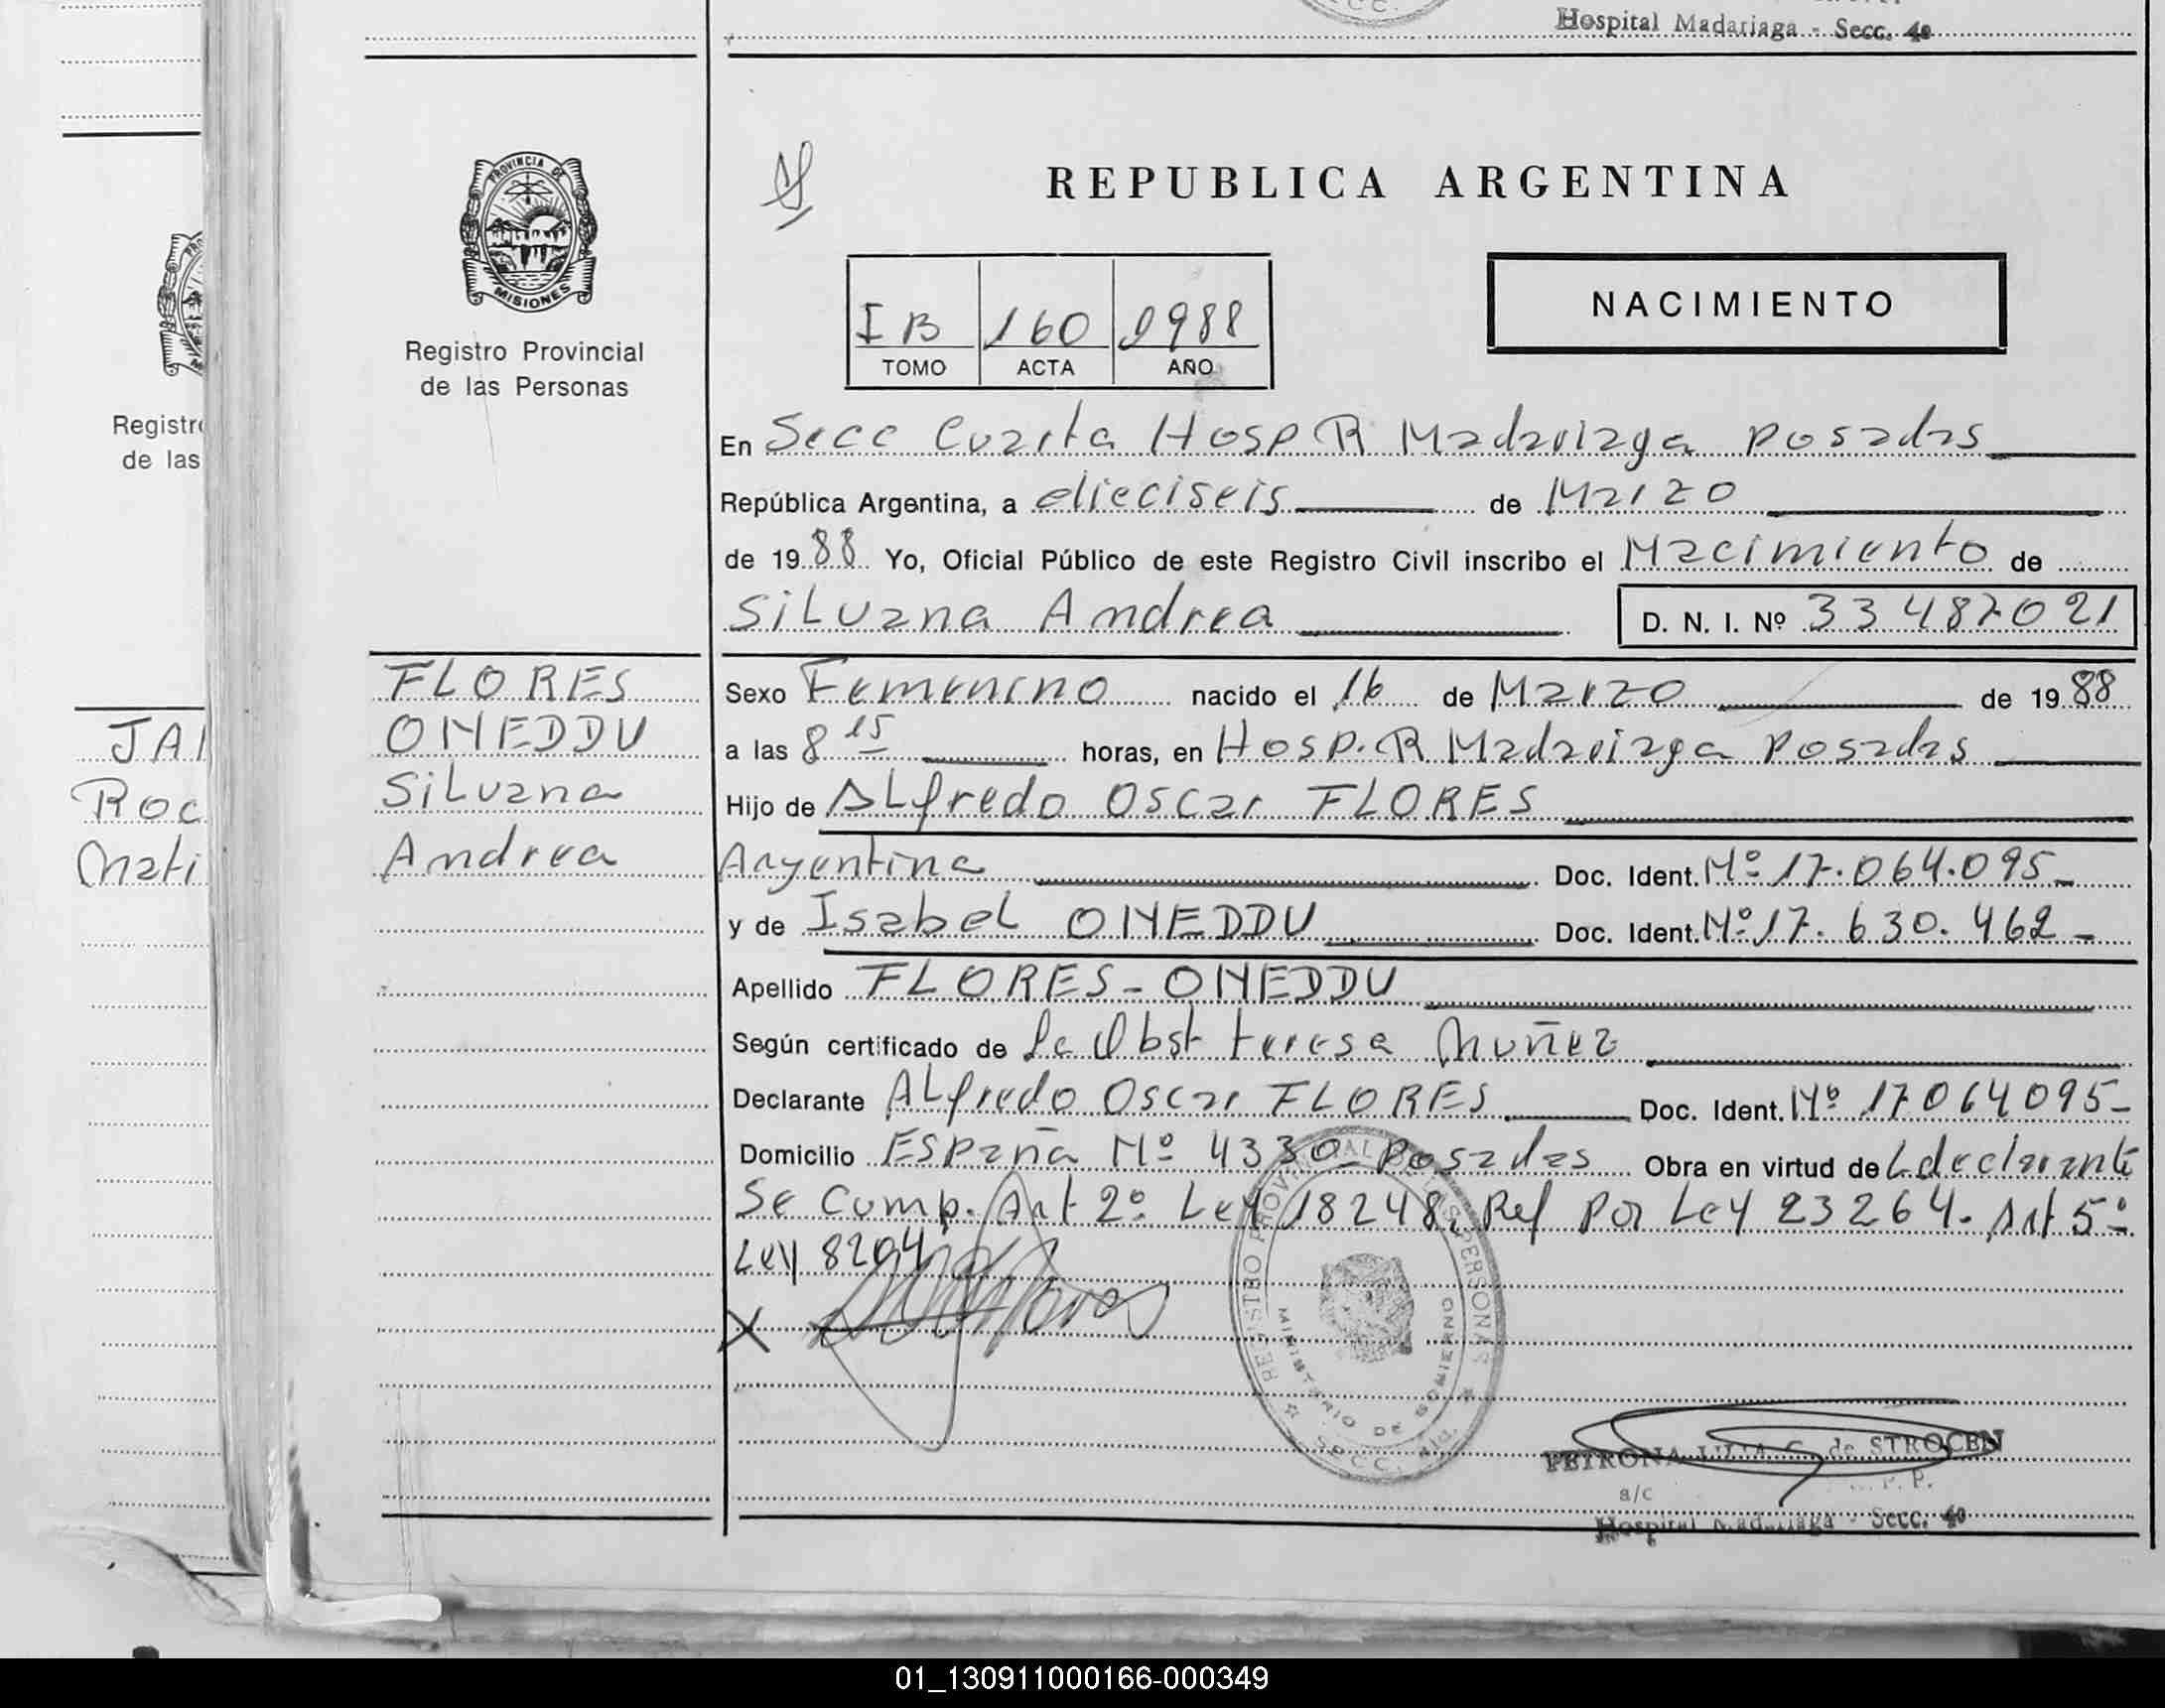 Hospital Madariaga - Secc. 4a
PROVINCIA DE
MISIONES
Registro Provincial
de las Personas
REPUBLICA ARGENTINA
NACIMIENTO
I B 160 1988
TOMO ACTA AÑO
En Secc Cuarta Hosp R Madariaga Posadas
República Argentina, a dieciseis de Marzo
de 1988 Yo, Oficial Público de este Registro Civil inscribo el Nacimiento de
Silvana Andrea D. N. I. Nº 33487021
Registr
de las
JA
Roc
Mati
FLORES
ONEDDU
Silvana
Andrea
Sexo Femenino nacido el 16 de Marzo de 1988
a las 8 15 horas, en Hosp. R Madariaga Posadas
Hijo de Alfredo Oscar FLORES
Argentina Doc. Ident. Nº 17.064.095-
y de Isabel ONEDDU Doc. Ident. Nº 17.630.462-
Apellido FLORES-ONEDDU
Según certificado de La Obst teresa Muñez
Declarante Alfredo Oscar FLORES Doc. Ident. Nº 17064095-
Domicilio España Nº 4330- Posadas Obra en virtud de L declarante
Se Cump. Art 2º Ley 18248, Ref Por Ley 23264. Art 5º
Ley 8204
X
REGISTRO PROVINCIAL DE LAS PERSONAS
MINISTERIO DE GOBIERNO
SECC. 4ta.
PETRONA de STROCEN
a/c P. P.
Hospital Madariaga - Secc. 4a
01_130911000166-000349